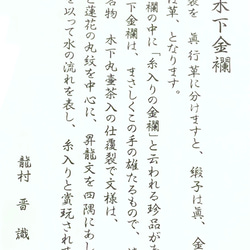 木下金襴
裂を 眞行草に分けますと、緞子は眞 金
行草、となります。
襴の中に「糸入りの金襴」と云われる珍品が
下金襴は、まさしくこの手の雄たるもので、
名物 木下丸壷茶入の仕覆裂で文様は、
と蓮花の丸紋を中心に、昇龍文を四隅にあし
を以って水の流れを表し、糸入りと賞玩されて
龍村 晋 識